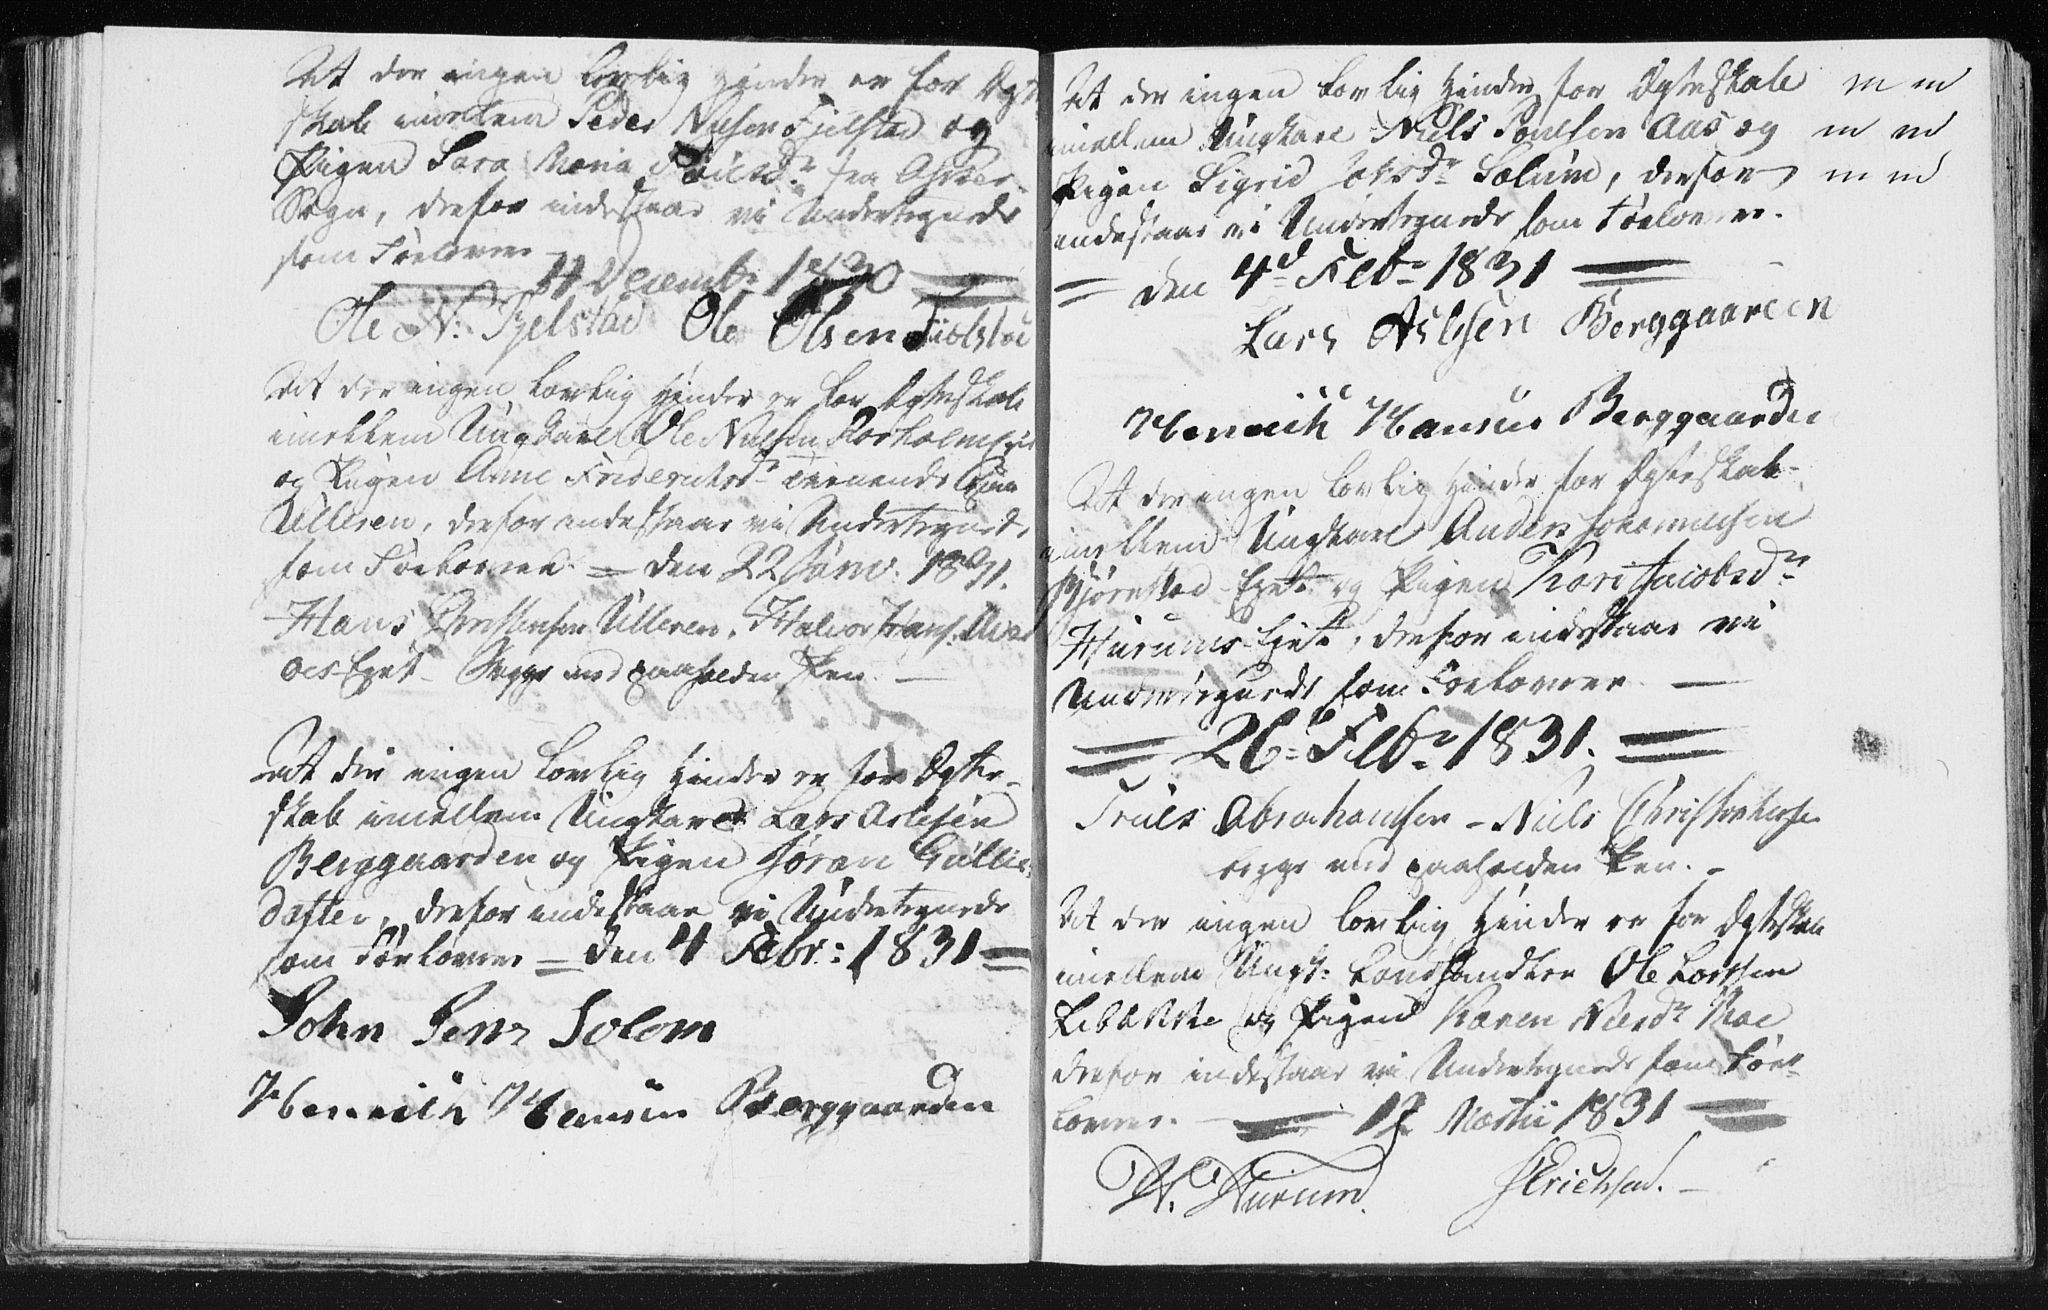 At der ingen lovlig Hinder er for Ægte
skab imellem Peder Nilsen Fjelstad og
Pigen Sara Maria fra Asker
Sogn, derfor indestaar vi Undertegnede
som Forlovere
4 Decembr 1830
Ole N: Fjelstad Ole Olsen
At der ingen lovlig Hinder er for Ægteskab
imellem Ungkarl Ole Nilsen
og Pigen Anne Friderichsdr tienende
Ulleren, derfor indestaar vi Undertegnede
som Forlovere = den 22 Janv. 1831.
Hans Ulleren. Halvor
Eyet Begge med paaholden Pen.
At der ingen lovlig Hinder er for Ægte-
skab imellem Ungkarl Lars Aslesen
Berggaarden og Pigen Jøran
datter, derfor indestaar vi Undertegnede
som Forlovere = den 4 Febr: 1831 =
John Jens Solom
Henrich Hansen Berggaarden
At der ingen lovlig Hinder for Ægteskab
imellem Ungkarl Niels Poulsen Aas og
Pigen Sigrid Solum, derfor
indestaar vi Undertegnede som Forlovere.
= den 4d Febr 1831 =
Lars Aslesen Berggaarden
Henrich Hansen Berggaarden
At der ingen lovlig Hinder for Ægteskab
imellem Ungkarl Anders Johannesen
Eyet og Pigen Kari Jacobsdr
Hurums Eyet, derfor indestaar vi
Undertegnede som Forlovere
= 26 Febr 1831. =
Truls Abrahamsen - Niels Christophersen
begge med paaholden Pen. -
At der ingen lovlig Hinder er for Ægteskab
imellem Ungk: Landhandler Ole Larsen
og Pigen Karen Moe
derfor indestaar vi Undertegnede som For-
lovere. = 12 Martii 1831 =
H. Hurum. Erichsen. -